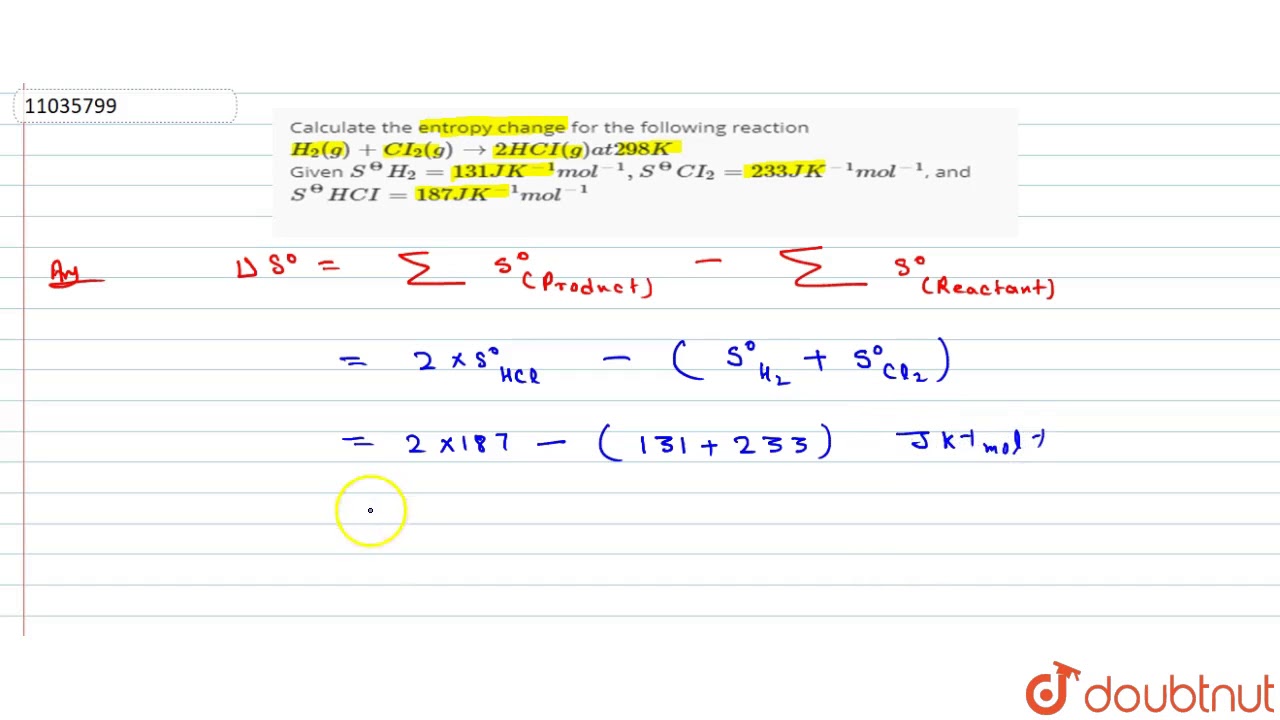 11035799
Calculate the entropy change for the following reaction
H₂(g) + CI₂(g) → 2HCI(g)at298K
Given S^Θ H₂ = 131JK⁻¹mol⁻¹, S^Θ CI₂ = 233JK⁻¹mol⁻¹, and
S^Θ HCI = 187JK⁻¹mol⁻¹
Ans Δ S° = Σ S°(Product) - Σ S°(Reactant)
= 2 × S°HCl - ( S°H₂ + S°Cl₂ )
= 2 × 187 - ( 131 + 233 ) J K⁻¹ mol⁻¹
doubtnut